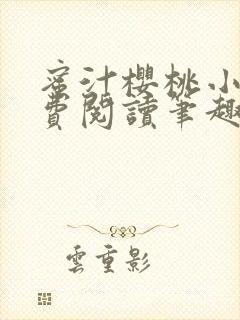 蜜汁櫻桃小
費閱讀筆趣
雲重影